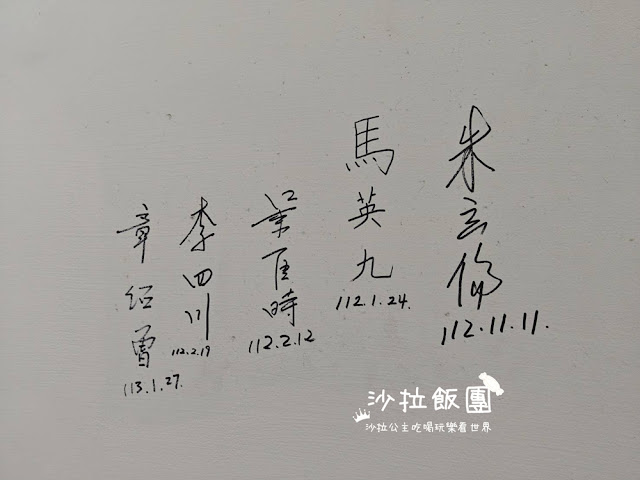 朱立倫
112.11.11.
馬英九
112.1.24.
葉匡時
112.2.12
李四川
112.2.19
章紹
113.1.27.
沙拉飯團
沙拉公主吃喝玩樂看世界